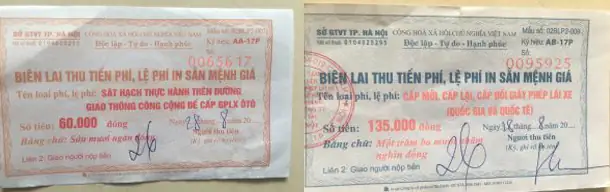 SỞ GTVT TP. HÀ NỘI
CỘNG HOÀ XÃ HỘI CHỦ NGHĨA VIỆT NAM
Độc lập - Tự do - Hạnh phúc
Ký hiệu: AB-17P
0065617
BIÊN LAI THU TIỀN PHÍ, LỆ PHÍ IN SẴN MỆNH GIÁ
Tên loại phí, lệ phí: SÁT HẠCH THỰC HÀNH TRÊN ĐƯỜNG
GIAO THÔNG CÔNG CỘNG ĐỂ CẤP GPLX ÔTÔ
Số tiền: 60.000 đồng
Ngày 28 tháng 8 - 20
Bằng chữ: Sáu mươi ngàn đồng
Người thu tiền
(Ký, ghi rõ họ tên)
Liên 2: Giao người nộp tiền
SỞ GTVT TP. HÀ NỘI
CỘNG HOÀ XÃ HỘI CHỦ NGHĨA VIỆT NAM
Độc lập - Tự do - Hạnh phúc
Ký hiệu: AB-17P
0095925
BIÊN LAI THU TIỀN PHÍ, LỆ PHÍ IN SẴN MỆNH GIÁ
Tên loại phí, lệ phí: CẤP MỚI, CẤP LẠI, CẤP ĐỔI GIẤY PHÉP LÁI XE
(QUỐC GIA VÀ QUỐC TẾ)
Số tiền: 135.000 đồng
Ngày 28 tháng 8 - 20
Bằng chữ: Một trăm ba mươi lăm
nghìn đồng
Người thu tiền
Liên 2: Giao người nộp tiền